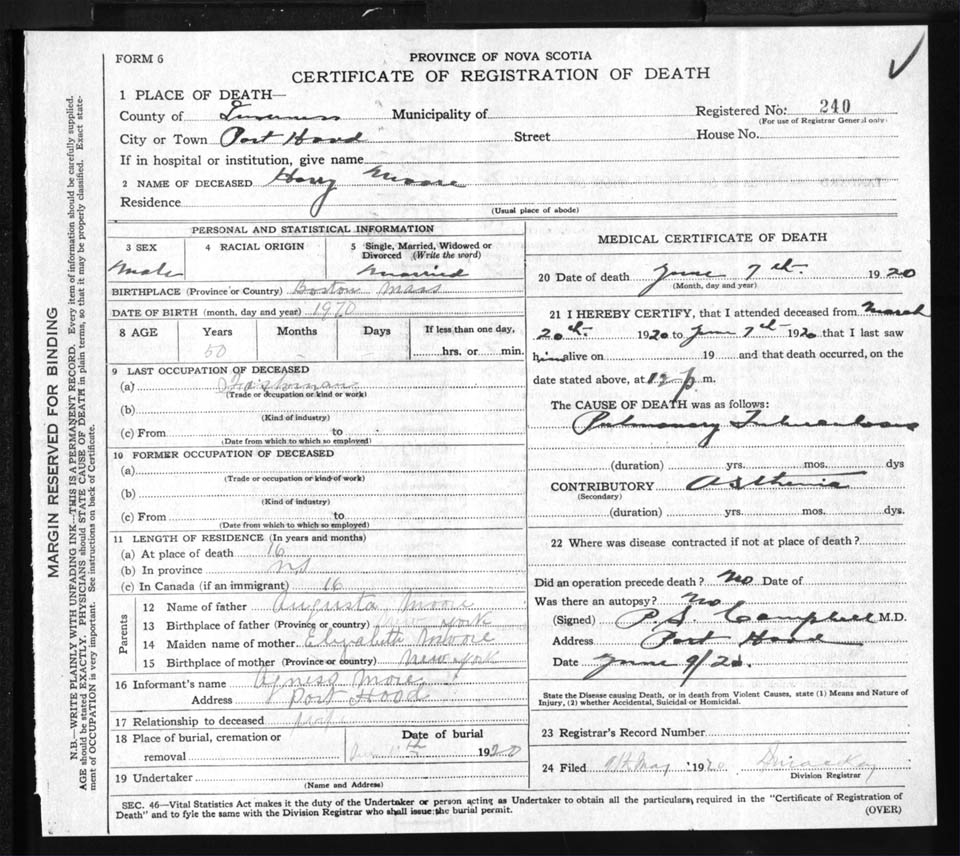 FORM 6
PROVINCE OF NOVA SCOTIA
CERTIFICATE OF REGISTRATION OF DEATH
1 PLACE OF DEATH—
County of Inverness Municipality of Registered No: 240
(For use of Registrar General only)
City or Town Port Hood Street House No.
If in hospital or institution, give name
2 NAME OF DECEASED Harry Moore
Residence
(Usual place of abode)
PERSONAL AND STATISTICAL INFORMATION
3 SEX 4 RACIAL ORIGIN 5 Single, Married, Widowed or Divorced (Write the word)
Male Married
BIRTHPLACE (Province or Country) Boston Mass
DATE OF BIRTH (month, day and year) 1970
8 AGE Years Months Days If less than one day,
50 hrs. or min.
9 LAST OCCUPATION OF DECEASED
(a)
(Trade or occupation or kind or work)
(b)
(Kind of industry)
(c) From to
(Date from which to which so employed)
10 FORMER OCCUPATION OF DECEASED
(a)
(Trade or occupation or kind of work)
(b)
(Kind of industry)
(c) From to
(Date from which to which so employed)
11 LENGTH OF RESIDENCE (In years and months)
(a) At place of death 16
(b) In province NS
(c) In Canada (if an immigrant) 16
Parents
12 Name of father Augusta Moore
13 Birthplace of father (Province or country) New York
14 Maiden name of mother Elizabeth Moore
15 Birthplace of mother (Province or country) New York
16 Informant's name Agness More
Address Port Hood
17 Relationship to deceased wife
18 Place of burial, cremation or removal
Date of burial
1920
19 Undertaker
(Name and Address)
MEDICAL CERTIFICATE OF DEATH
20 Date of death June 7th. 1920
(Month, day and year)
21 I HEREBY CERTIFY, that I attended deceased from March
20th. 1920 to June 7th 1920 that I last saw
him alive on 19 and that death occurred, on the
date stated above, at 12 p. m.
The CAUSE OF DEATH was as follows:
Pulmonary Tuberculosis
(duration) yrs. mos. dys
CONTRIBUTORY Asthenia
(Secondary)
(duration) yrs. mos. dys.
22 Where was disease contracted if not at place of death?
Did an operation precede death? No Date of
Was there an autopsy? No
(Signed) P. S. Campbell M.D.
Address Port Hood
Date June 9/20.
State the Disease causing Death, or in death from Violent Causes, state (1) Means and Nature of Injury, (2) whether Accidental, Suicidal or Homicidal.
23 Registrar's Record Number
24 Filed 1920
Division Registrar
SEC. 46—Vital Statistics Act makes it the duty of the Undertaker or person acting as Undertaker to obtain all the particulars required in the "Certificate of Registration of
Death" and to fyle the same with the Division Registrar who shall issue the burial permit. (OVER)
MARGIN RESERVED FOR BINDING
N.B.—WRITE PLAINLY WITH UNFADING INK—THIS IS A PERMANENT RECORD. Every item of information should be carefully supplied.
AGE should be stated EXACTLY. PHYSICIANS should STATE CAUSE OF DEATH in plain terms, so that it may be properly classified. Exact statement of OCCUPATION is very important. See instructions on back of Certificate.